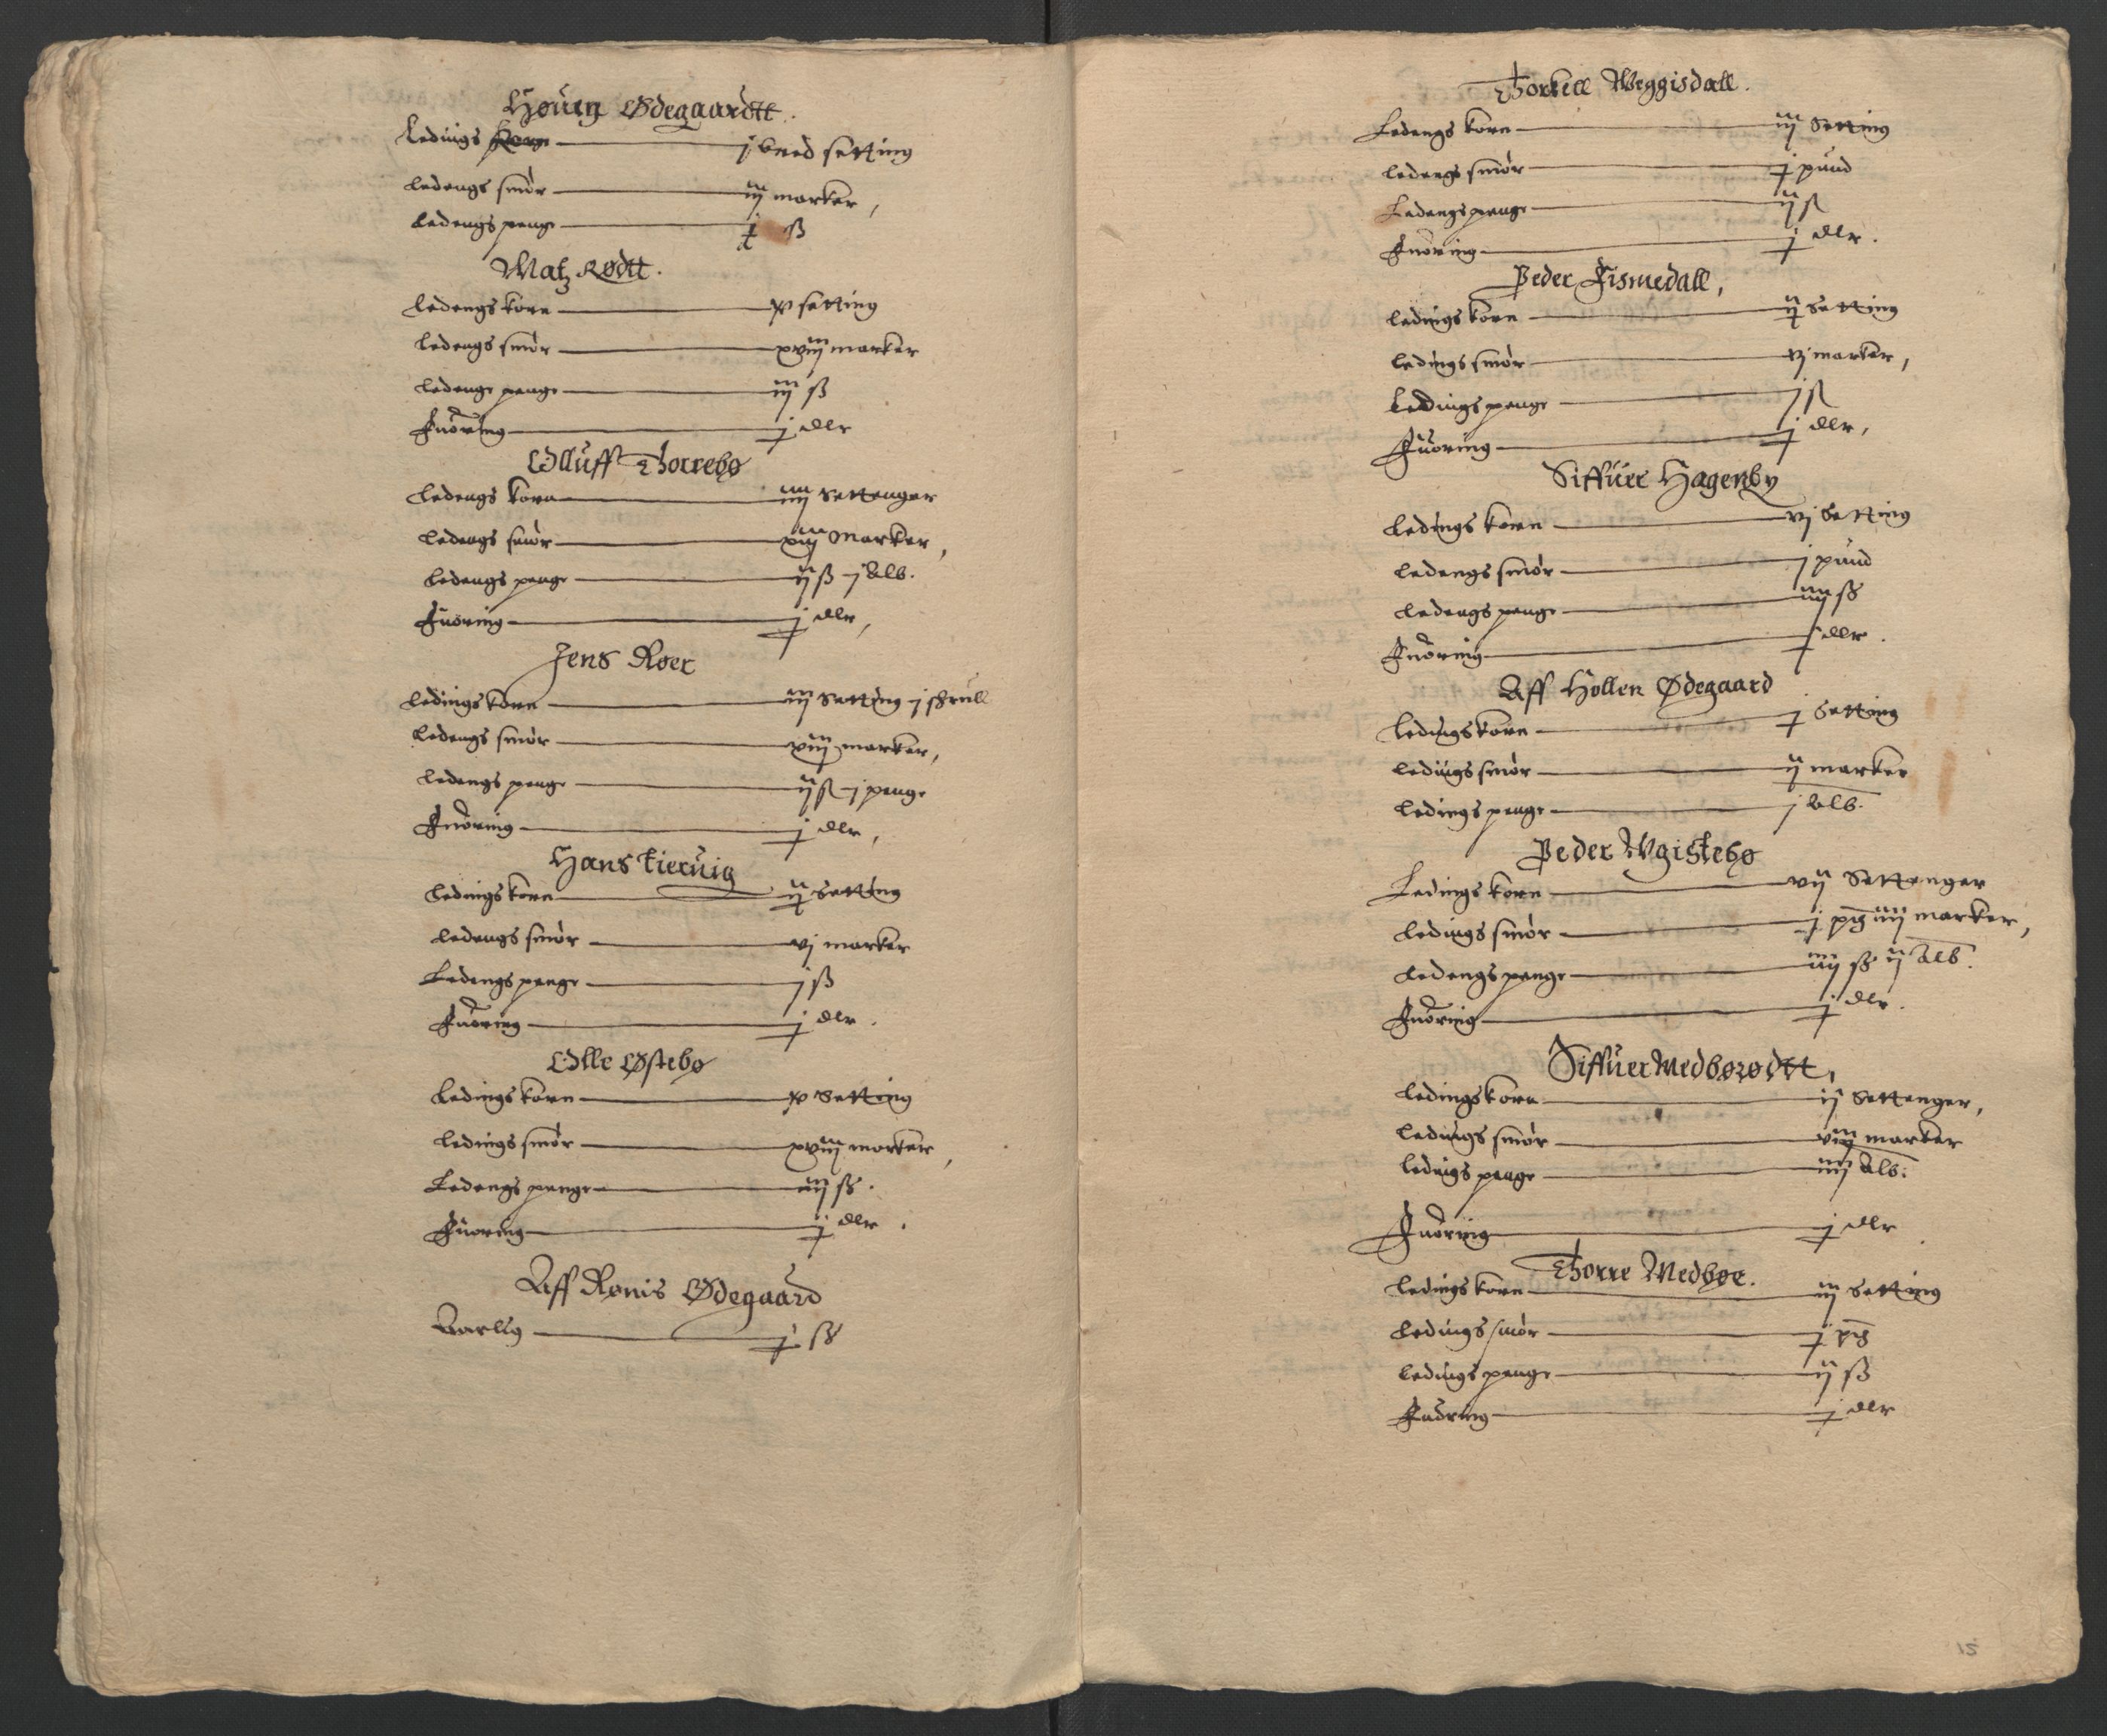 Høuig Ødegaardtt.
Ledings korn — j bred setting
Ledengs smør — iij marker,
Ledengs penge — j ß
Matz Rødtt.
Ledengs korn — x setting
Ledengs smør — xviij marker
Ledenge penge — iij ß
Fuoring — j dlr
Olluff Thorrebø
Ledengs korn — iiij Settenger
Ledengs smør — xiij Marker,
Ledengs penge — ij ß j Alb.
Fuoring — j dlr,
Jens Roer
Ledings korn — iij Setting j skrull
Ledengs smør — viij marker,
Ledengs penge — ij ß j penge
Fuoring — j dlr,
Hans Kieruig
Ledings korn — ij Setting
Ledengs smør — vj marker
Ledengs penge — j ß
Fuoring — j dlr.
Olle Østebø
Ledings korn — x Setting
Ledings smør — xviij marker,
Ledengs penge — iij ß.
Fuoring — j dlr.
Aff Rønis Ødegaard
— j ß
Thorkell Weggisdall.
Ledengs korn — iij Setting
Ledengs smør — j pund
Ledengs penge — ij ß
Fuoring — j dlr.
Peder Fismedall,
Ledings korn — ij Setting
Ledings smør — vj marker,
Ledings penge — j ß
Fuoring — j dlr,
Siffuer Hagenby
Ledings korn — vj Setting
Ledengs smør — j pund
Ledengs penge — iiij ß
Fuoring — j dlr.
Aff Hollen Ødegaard
Ledings korn — j Setting
Ledings smør — ij marker
Ledings penge — j Alb.
Peder Wgistebø
Ledings korn — vij Settenger
Ledings smør — j pd iiij marker,
Ledengs penge — iiij ß ij Alb.
Fuoring — j dlr.
Siffuer Medbørødtt,
Ledings korn — ij Settenger,
Ledings smør — viij marker
Ledings penge — iiij Alb.
Fuoring — j dlr
Thorre Medbøe.
Ledings korn — iij Setting
Ledings smør — j pd
Ledings penge — ij ß
Fuoring — j dlr
15